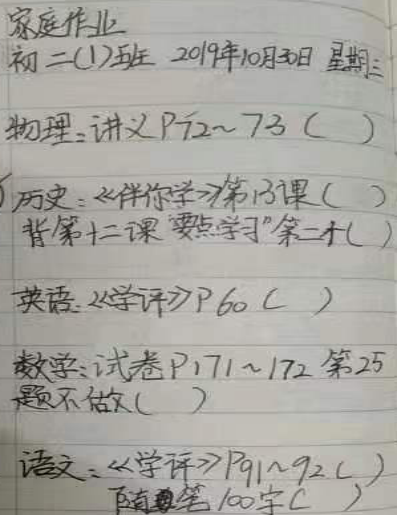 家庭作业
初二(1)班 2019年10月30日 星期三
物理:讲义P72~73( )
历史:《伴你学》第13课( )
背第十二课"要点学习"第二个( )
英语:《学评》P60( )
数学:试卷P171~172 第25
题不做( )
语文:《学评》P91~92( )
随笔100字( )